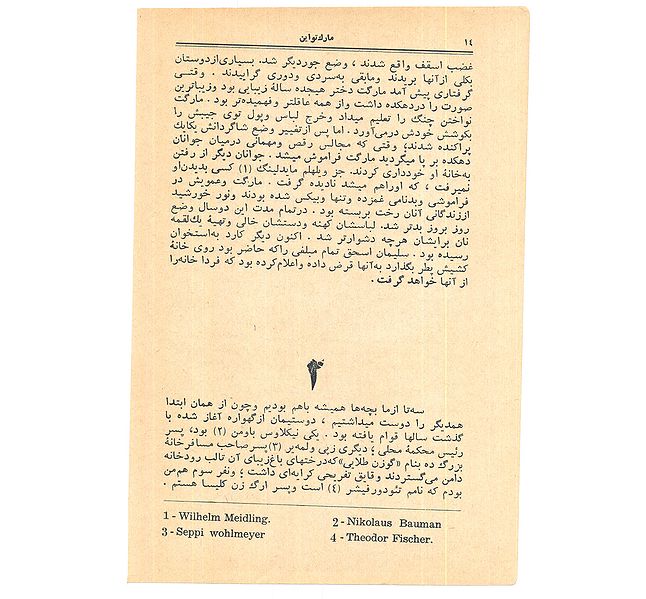 ۱٤
مارك‌تواین
غضب اسقف واقع شدند ، وضع جوردیگر شد. بسیاری‌ازدوستان
بکلی ازآنها بریدند ومابقی به‌سردی ودوری گراییدند . وقتــی
گرفتاری پیش آمد مارگت دختر هیجده سالهٔ زیبایی بود وزیباترین
صورت را دردهکده داشت واز همه عاقلتر وفهمیده‌تر بود . مارگت
نواختن چنگ را تعلیم میداد وخرج لباس وپول توی جیبش را
بکوشش خودش درمی‌آورد . اما پس ازتغییر وضع شاگردانش یکایك
پراکنده شدند؛ وقتی که مجالس رقص ومهمانی درمیان جوانان
دهکده بر پا میگردید مارگت فراموش میشد . جوانان دیگر از رفتن
به‌خانهٔ او خودداری کردند. جز ویلهلم مایدلینگ (۱) کسی بدیدن‌او
نمیرفت ، که اوراهم میشد نادیده گرفت . مارگت وعمویش در
فراموشی وبدنامی غمزده وتنها وبیکس شده بودند ونور خورشید
اززندگانی آنان رخت بربسته بود . درتمام مدت این دوسال وضع
روز بروز بدتر شد. لباسشان کهنه ودستشان خالی وتهیهٔ یك‌لقمه
نان برایشان هرچه دشوارتر شد . اکنون دیگر کارد به‌استخوان
رسیده بود . سلیمان اسحق تمام مبلغی راکه حاضر بود روی خانهٔ
کشیش پطر بگذارد به‌آنها قرض داده واعلام‌کرده بود که فردا خانه‌را
از آنها خواهد گرفت .
۲
سه‌تا ازما بچه‌ها همیشه باهم بودیم وچون از همان ابتدا
همدیگر را دوست میداشتیم ، دوستیمان ازگهواره آغاز شده با
گذشت سالها قوام یافته بود . یکی نیکلاوس باومن (۲) بود، پسر
رئیس محکمهٔ محلی ؛ دیگری زپی ولمه‌یر (۳)پسرصاحب مسافرخانهٔ
بزرگ ده بنام «گوزن طلایی»که‌درختهای باغ‌زیبای آن تالب رودخانه
دامن می‌گستردند وقایق تفریحی کرایه‌ای داشت ؛ ونفر سوم هم‌من
بودم که نامم تئودورفیشر (٤) است وپسر ارگ زن کلیسا هستم .
1 - Wilhelm Meidling.
2 - Nikolaus Bauman
3 - Seppi wohlmeyer
4 - Theodor Fischer.